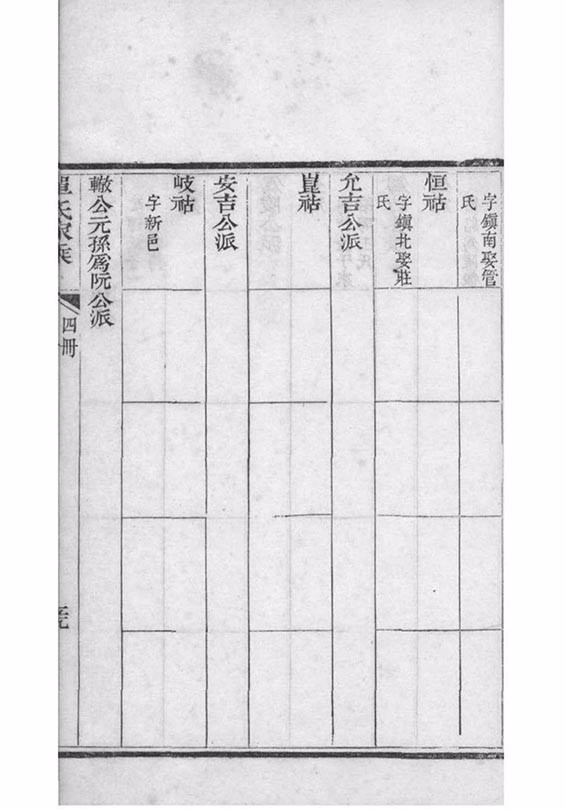 字鎮南娶管
氏
恒祜
字鎮北娶莊
氏
允吉公派
崑祜
安吉公派
岐祜
字新邑
轍公元孫為阮公派
氏家乘
四冊